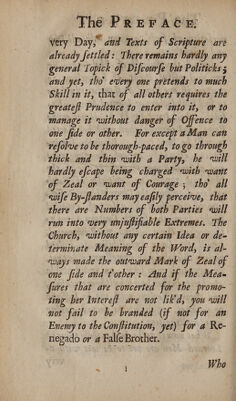 The PREFACE.
very Day, and Texts of Scripture are
already settled: There remains hardly any
general Topick of Discourse but Politicks;
and yet, tho' every one pretends to much
Skill in it, that of all others requires the
greatest Prudence to enter into it, or to
manage it without danger of Offence to
one side or other. For except a Man can
resolve to be thorough-paced, to go through
thick and thin with a Party, he will
hardly escape being charged with want
of Zeal or want of Courage; tho' all
wise By-standers may easily perceive, that
there are Numbers of both Parties will
run into very unjustifiable Extremes. The
Church, without any certain Idea or de-
terminate Meaning of the Word, is al-
ways made the outward Mark of Zeal of
one side and t'other: And if the Mea-
sures that are concerted for the promo-
ting her Interest are not lik'd, you will
not fail to be branded (if not for an
Enemy to the Constitution, yet) for a Re-
negado or a False Brother.
1 Who